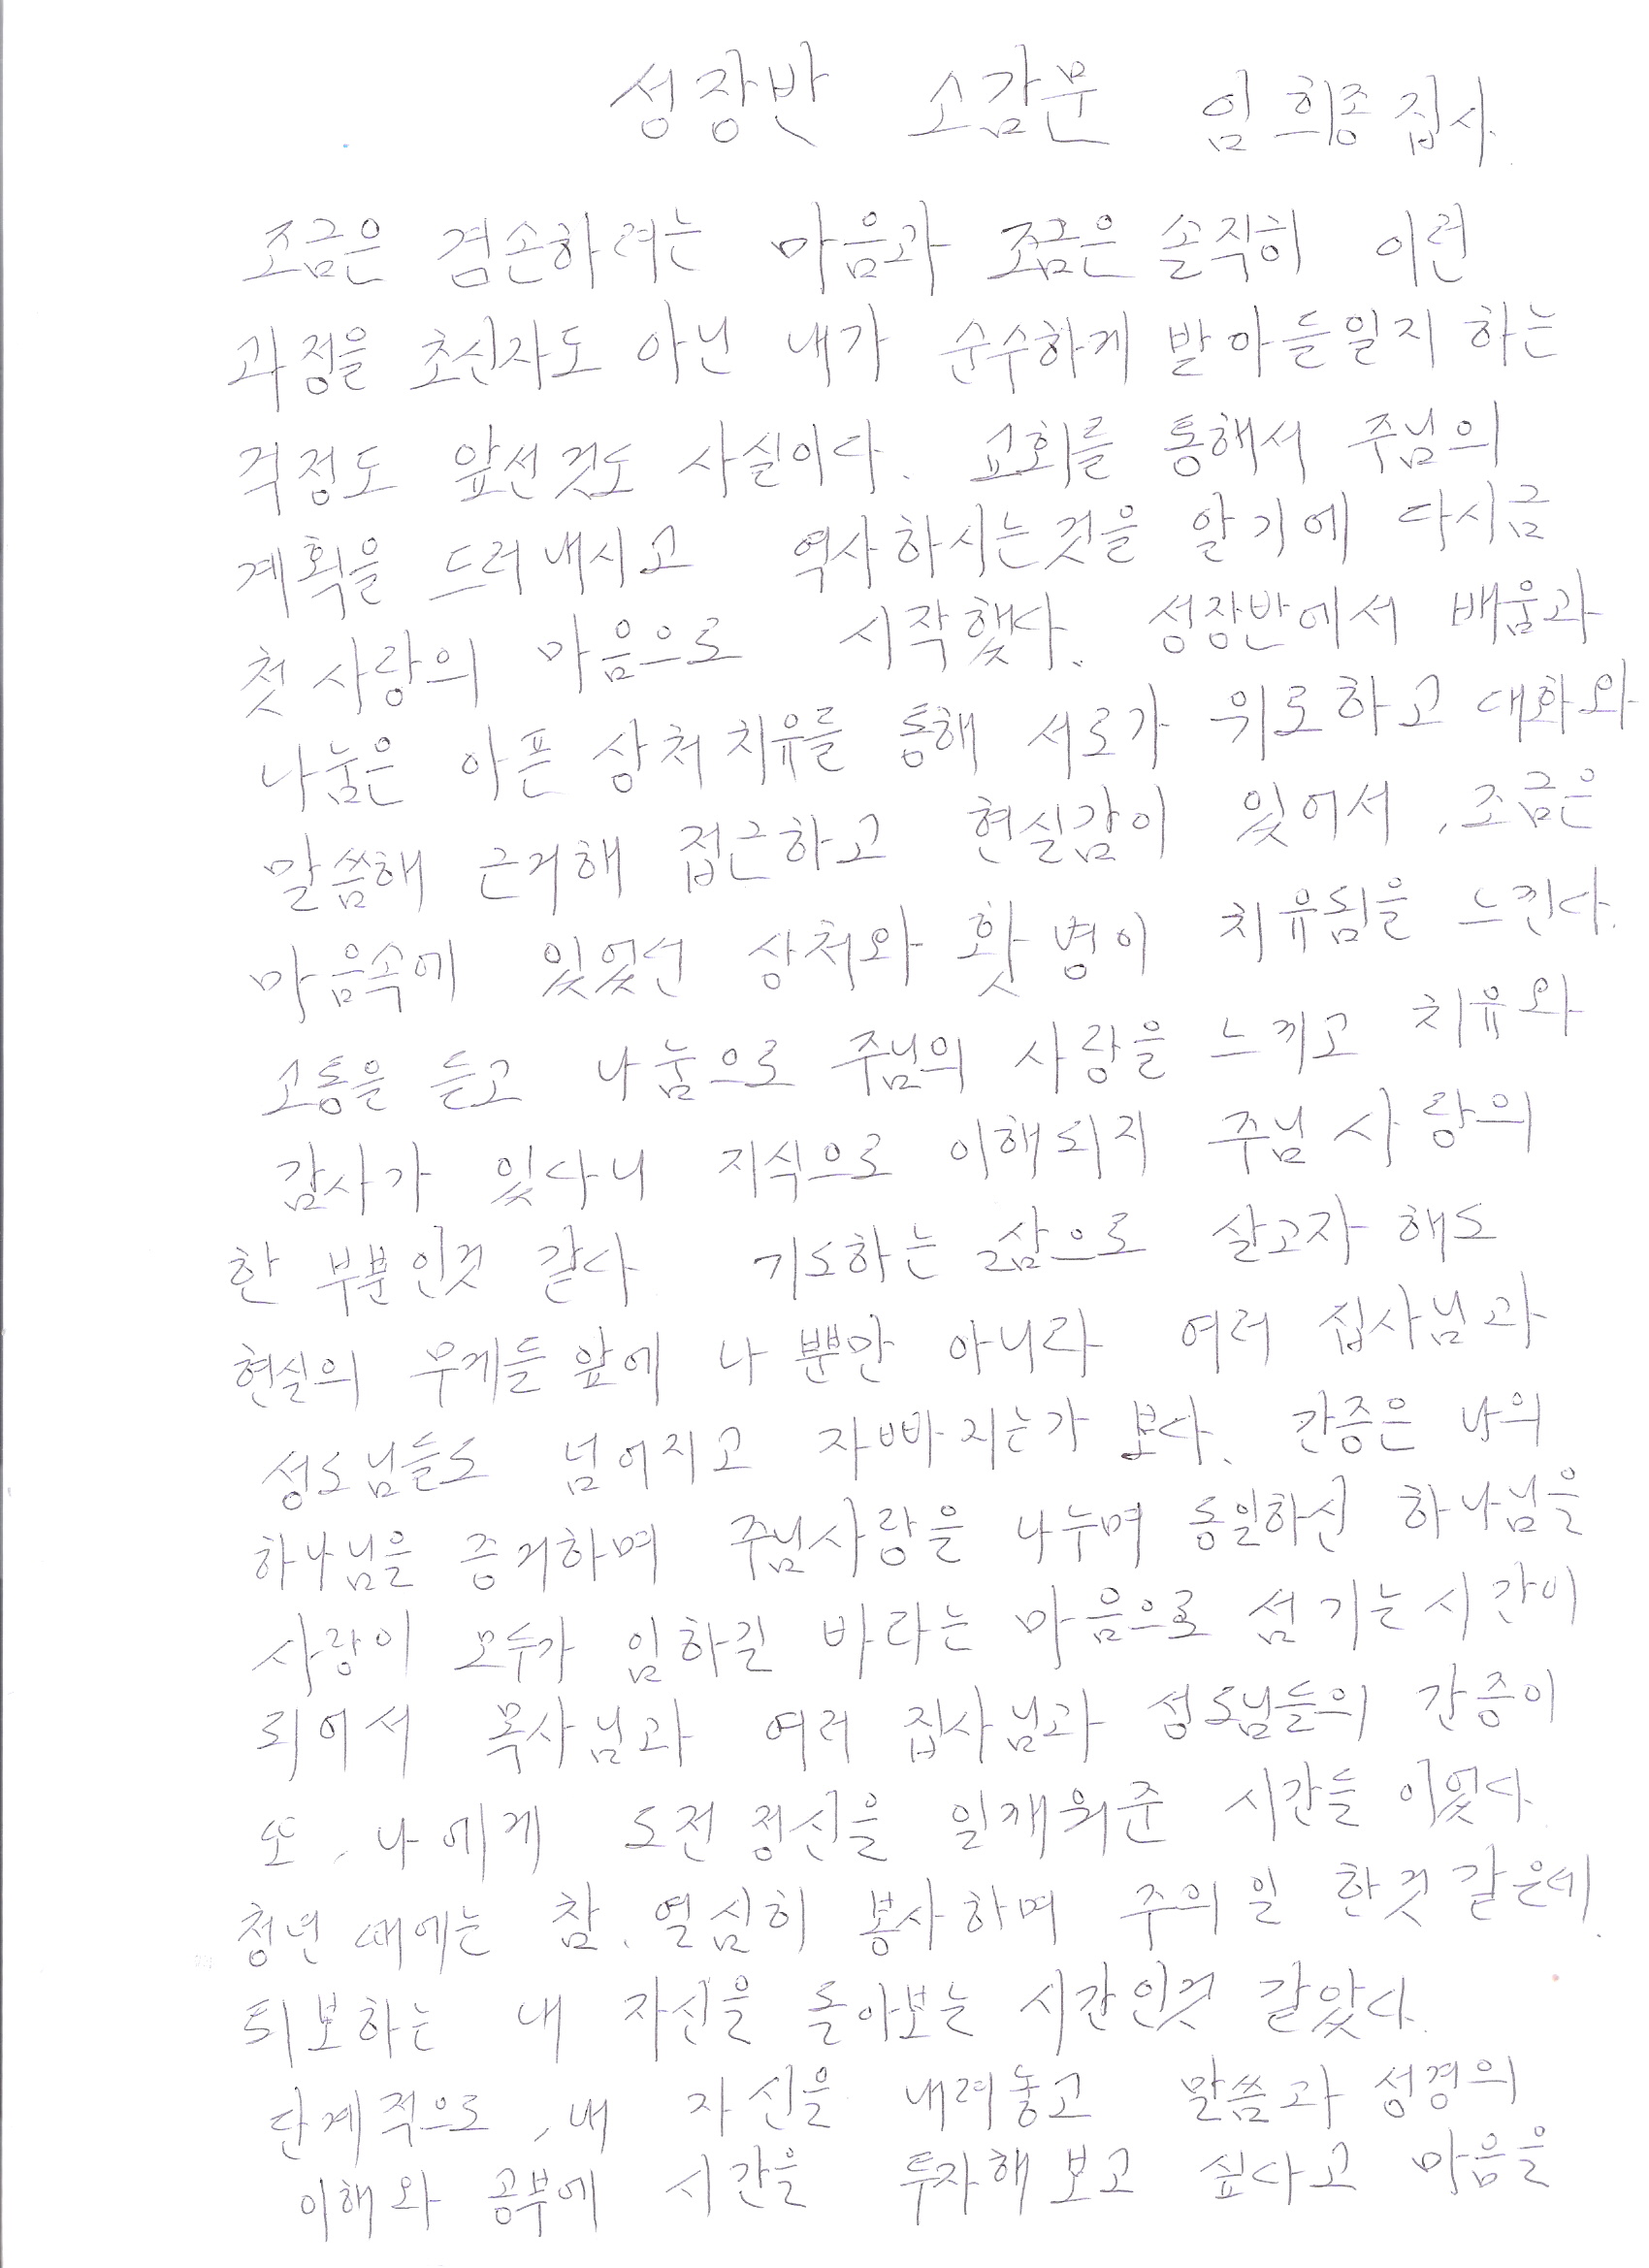 성장반 소감문 임희종 집사.
조금은 겸손하려는 마음과 조금은 솔직히 이런
과정을 초신자도 아닌 내가 순수하게 받아들일지 하는
걱정도 앞선것도 사실이다. 교회를 통해서 주님의
계획을 드러내시고 역사하시는것을 알기에 다시금
첫사랑의 마음으로 시작했다. 성장반에서 배움과
나눔은 아픈 상처 치유를 통해 서로가 위로하고 대화와
말씀해 근거해 접근하고 현실감이 있어서, 조금은
마음속에 있었던 상처와 홧병이 치유됨을 느낀다.
고통을 듣고 나눔으로 주님의 사랑을 느끼고 치유와
감사가 있다니 지식으로 이해되지 주님 사랑의
한 부분인것 같다 기도하는 삶으로 살고자 해도
현실의 무게들 앞에 나 뿐만 아니라 여러 집사님과
성도님들도 넘어지고 자빠지는가 보다. 간증은 나의
하나님을 증거하며 주님사랑을 나누며 동일하신 하나님을
사랑이 모두가 임하길 바라는 마음으로 섬기는 시간이
되어서 목사님과 여러 집사님과 성도님들의 간증이
또, 나에게 도전정신을 일깨워준 시간들 이었다.
청년 때에는 참. 열심히 봉사하며 주의 일 한것 같은데.
퇴보하는 내 자신을 돌아보는 시간인것 같았다.
단계적으로, 내 자신을 내려놓고 말씀과 성경의
이해와 공부에 시간을 투자해보고 싶다고 마음을